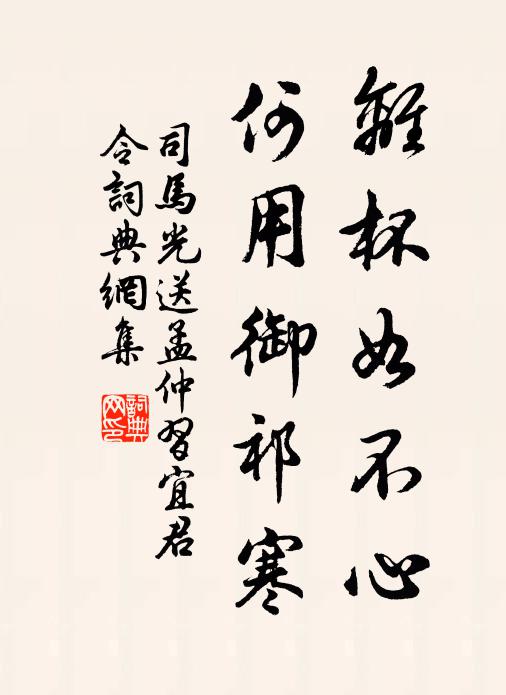 離杯如不心
何用御祁寒
司馬光送孟仲習宜君
令詞典網集
詞典
网印